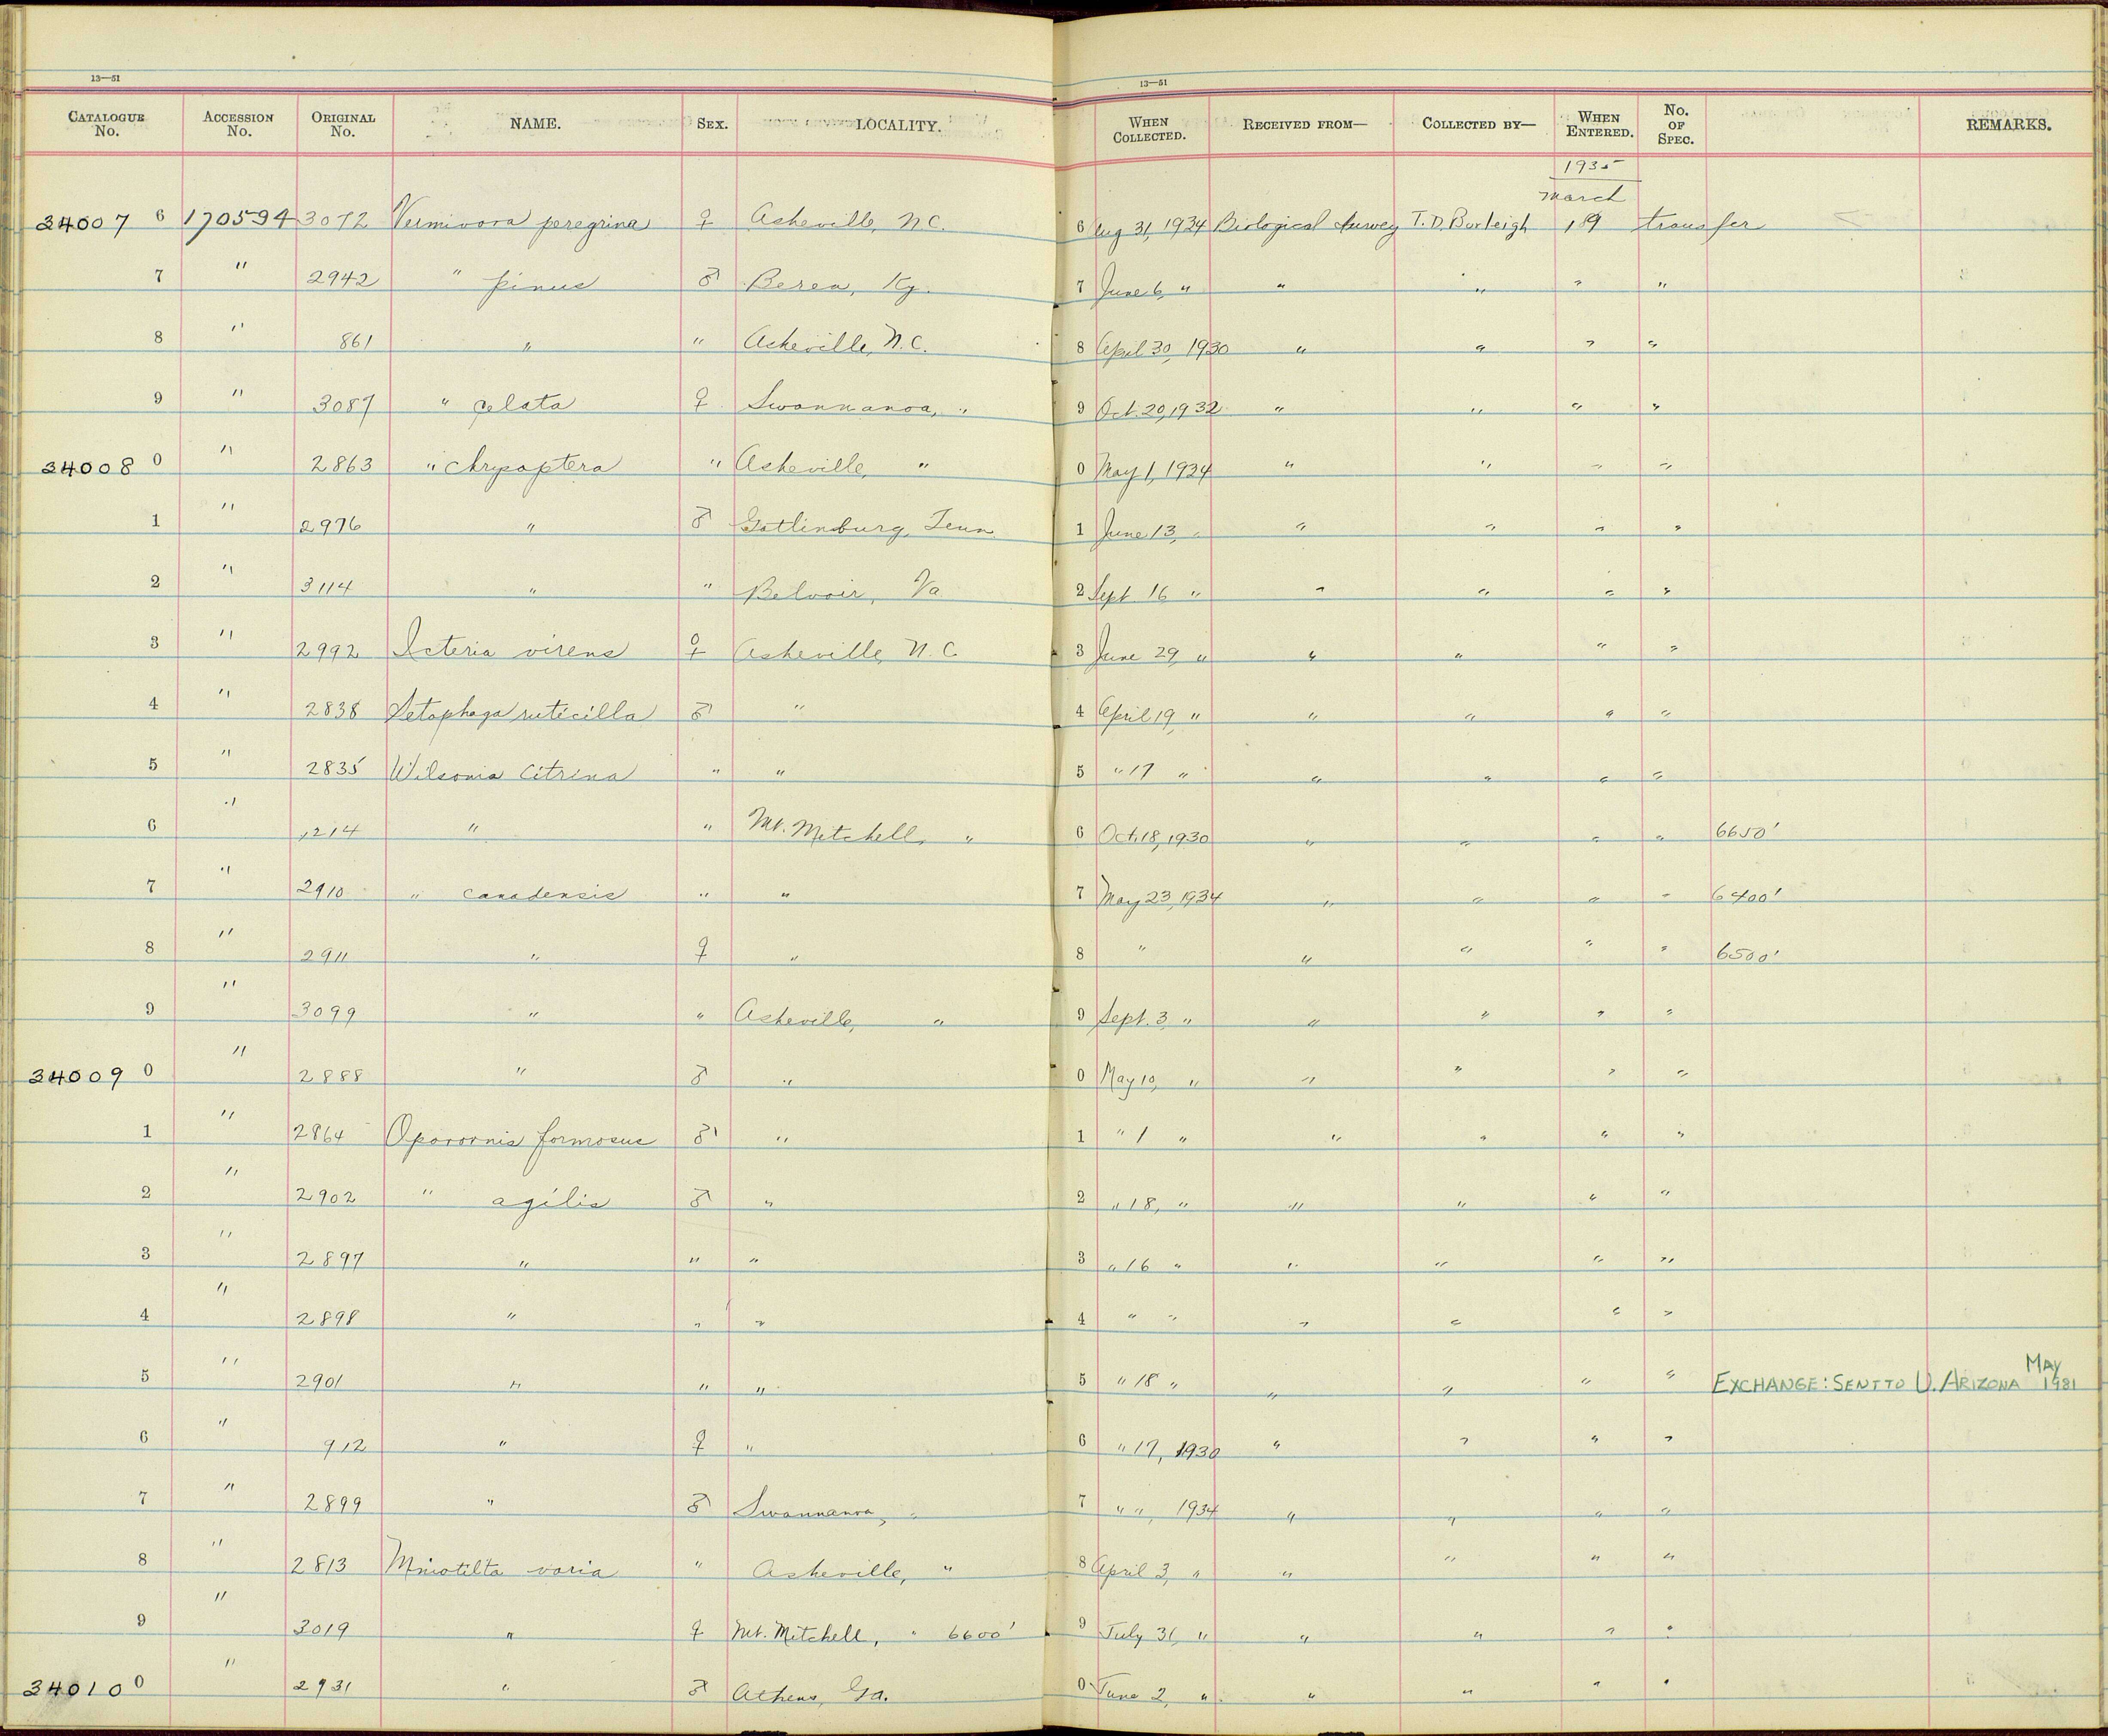 13—51 13—51
CATALOGUE No. ACCESSION No. ORIGINAL No. NAME. SEX. LOCALITY. WHEN COLLECTED. RECEIVED FROM— COLLECTED BY— WHEN ENTERED. No. OF SPEC. REMARKS.
1935
March
34007 6 170594 3072 Vermivora peregrina ♀ Asheville, N.C. 6 Aug 31, 1934 Biological Survey T. D. Burleigh 19 transfer
7 " 2942 " pinus ♂ Berea, Ky. 7 June 6, " " " " "
8 " 861 " " Asheville, N.C. 8 April 30, 1930 " " " "
9 " 3087 " celata ♀ Swannanoa, " 9 Oct. 20, 1932 " " " "
34008 0 " 2863 " chrysoptera " Asheville, " 0 May 1, 1934 " " " "
1 " 2976 " ♂ Gatlinburg, Tenn. 1 June 13, " " " " "
2 " 3114 " " Belvoir, Va 2 Sept 16 " " " " "
3 " 2992 Icteria virens ♀ Asheville, N.C. 3 June 29, " " " " "
4 " 2838 Setophaga ruticilla ♂ " 4 April 19, " " " " "
5 " 2835 Wilsonia citrina " " 5 " 17 " " " " "
6 " 1214 " " Mt. Mitchell, " 6 Oct. 18, 1930 " " " " 6650'
7 " 2910 " canadensis " " 7 May 23, 1934 " " " " 6400'
8 " 2911 " ♀ " 8 " " " " " 6500'
9 " 3099 " " Asheville, " 9 Sept. 3, " " " " "
34009 0 " 2888 " ♂ " 0 May 10, " " " " "
1 " 2864 Oporornis formosus ♂ " 1 " 1 " " " " "
2 " 2902 " agilis ♂ " 2 " 18, " " " " "
3 " 2897 " " " 3 " 16 " " " " "
4 " 2898 " " " 4 " " " " " "
5 " 2901 " " " 5 " 18 " " " " " EXCHANGE: SENT TO U. ARIZONA MAY 1981
6 " 912 " ♀ " 6 " 17, 1930 " " " "
7 " 2899 " ♂ Swannanoa, " 7 " ", 1934 " " " "
8 " 2813 Mniotilta varia " Asheville, " 8 April 3, " " " " "
9 " 3019 " ♀ Mt. Mitchell, " 6600' 9 July 31, " " " " "
34010 0 " 2931 " ♂ Athens, Ga. 0 June 2, " " " " "